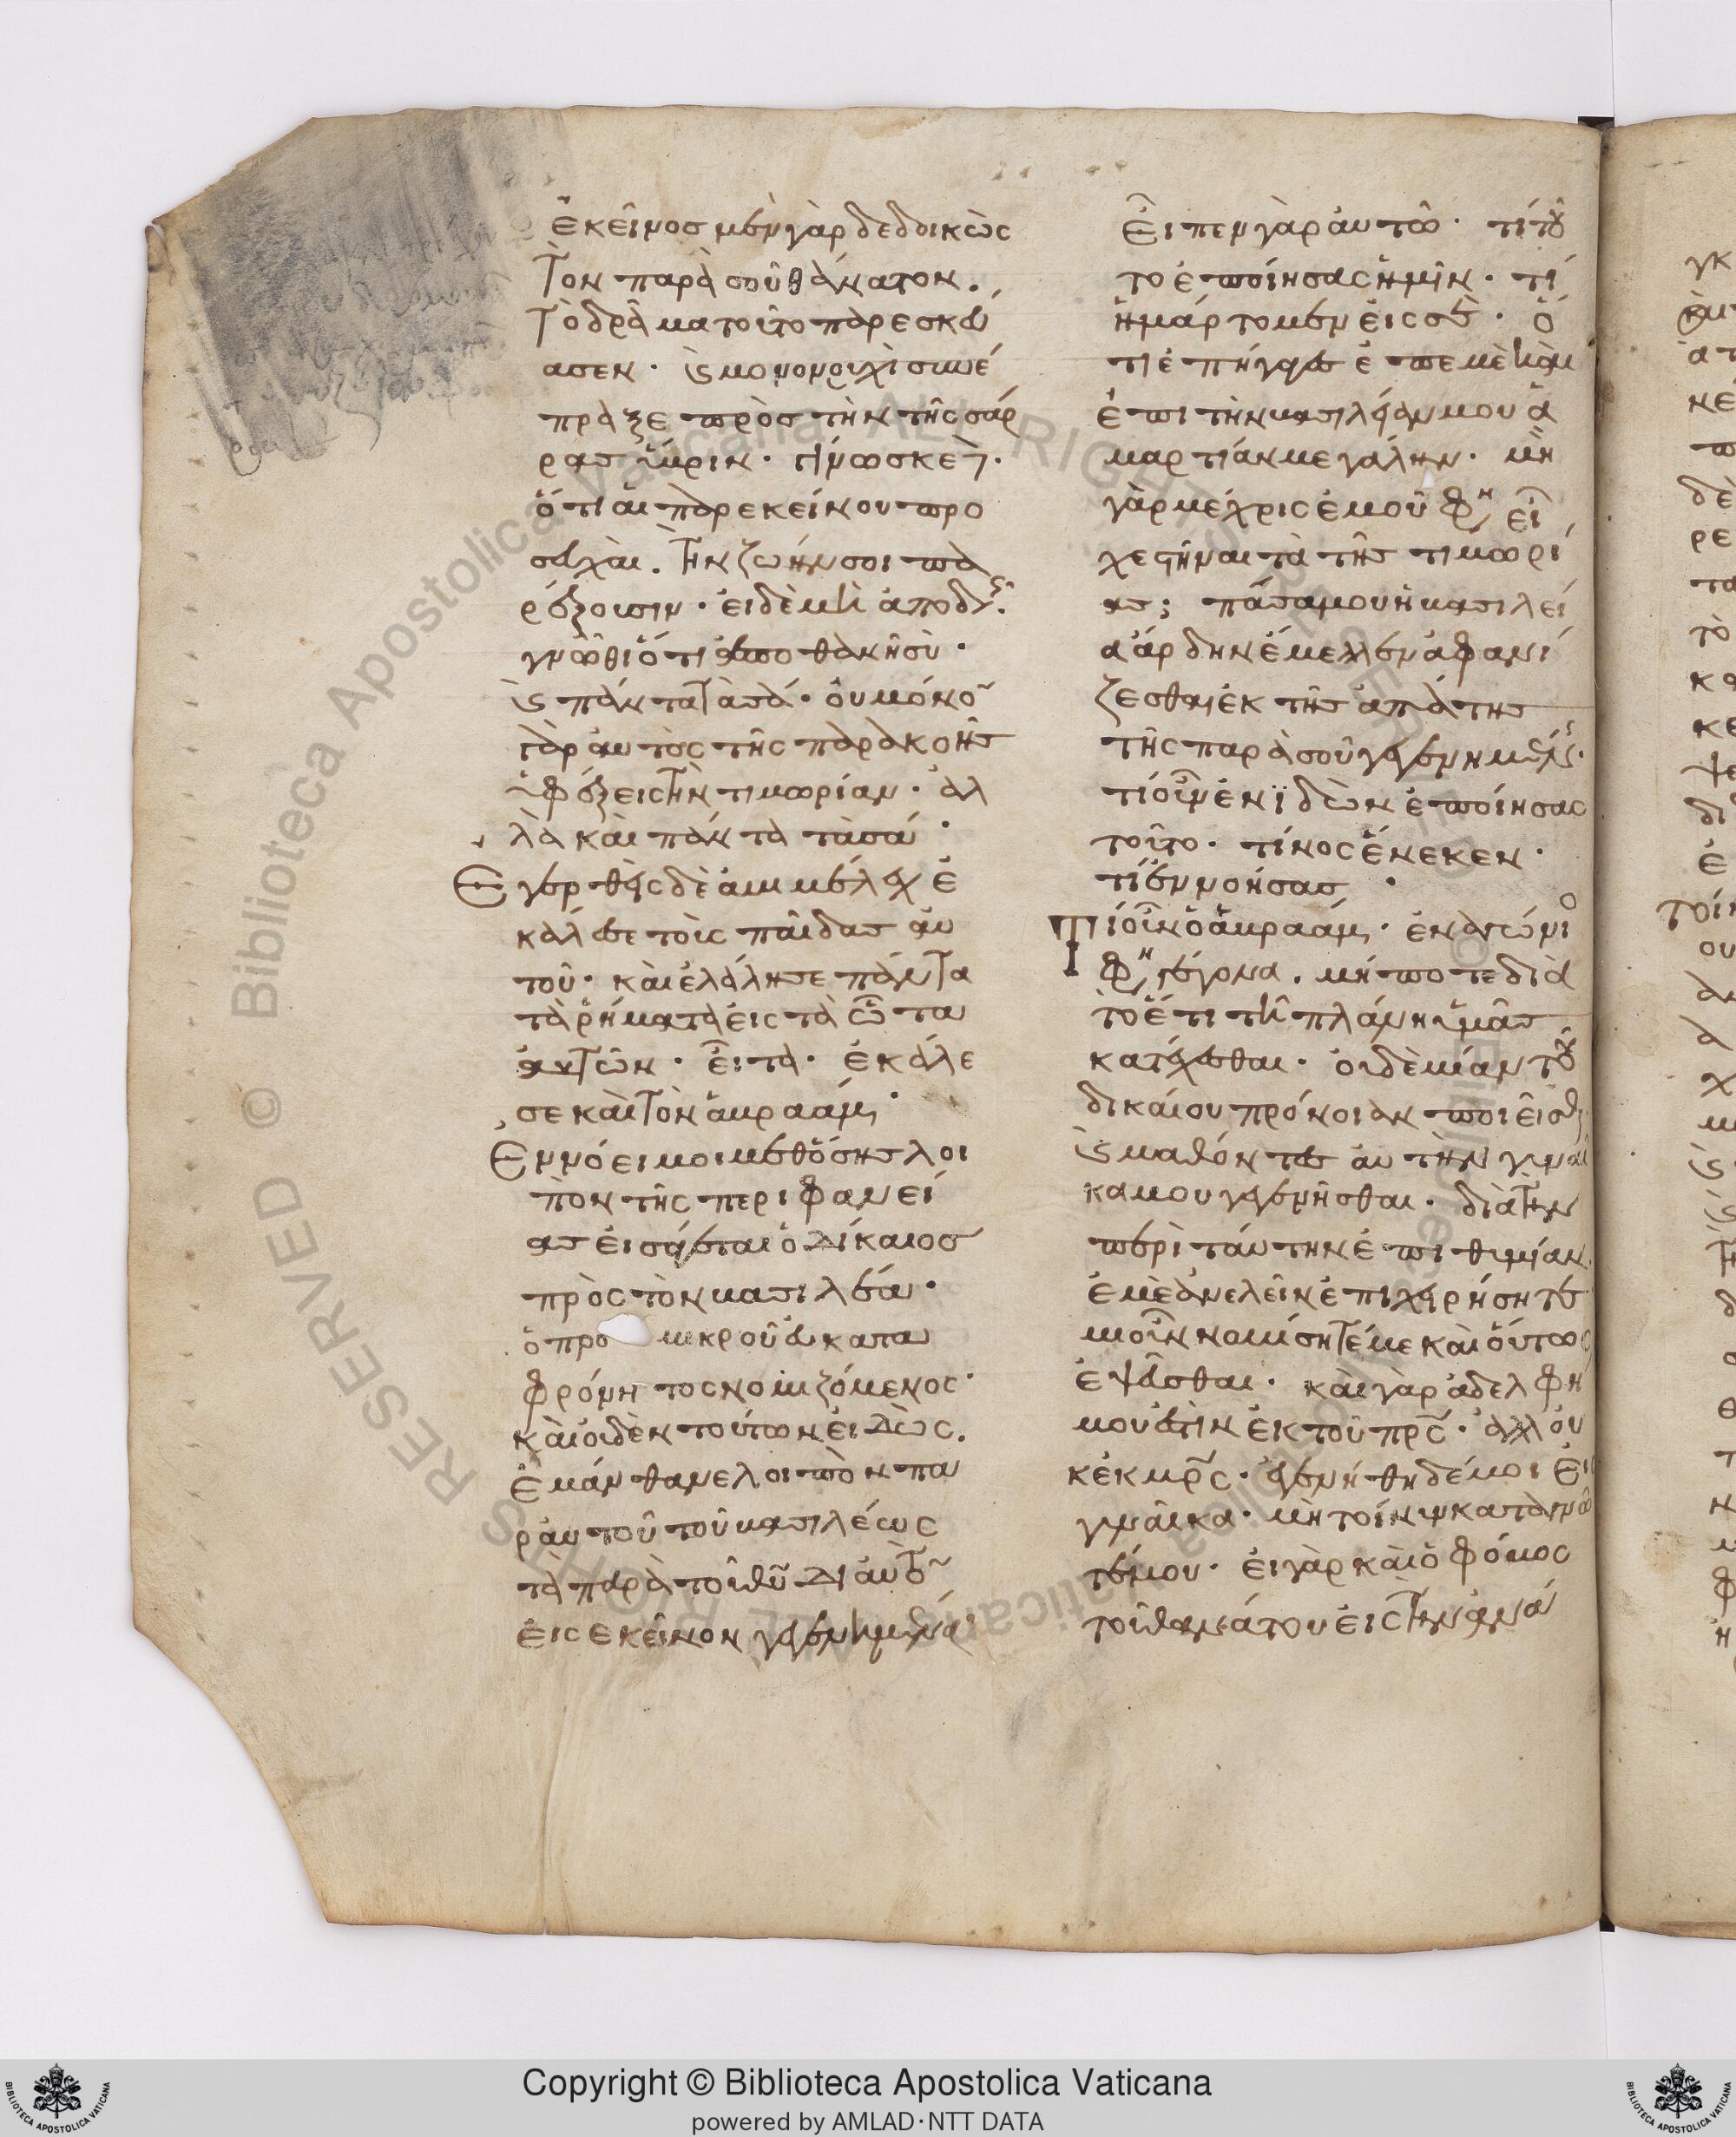 ἐκεῖνος μὲν γὰρ δεδοικὼς
τὸν παρὰ σοῦ θάνατον.
τὸ δρᾶμα τοῦτο παρεσκεύ
ασεν· καὶ μονονουχὶ συνέ
πραξε πρὸς τὴν τῆς σάρ
ρας ὕβριν· γίνωσκε
ὅτι αἱ παρ ἐκείνου προ
σευχαὶ. τὴν ζωήν σοι πα
ρέξουσιν· εἰ δὲ μὴ ἀποδῷς·
γνῶθι ὅτι ἀποθανῇ σὺ·
καὶ πάντα τὰ σά· οὐ μόνον
γὰρ αὐτὸς τῆς παρακοῆς
ὑφέξεις τὴν τιμωρίαν· ἀλ
λὰ καὶ πάντα τὰ σά·
Εγερθεὶς δὲ ἀβιμέλεχ ἐ
κάλεσε τοὺς παῖδας αὐ
τοῦ· καὶ ἐλάλησε πάντα
τὰ ῥήματα εἰς τὰ ὦτα
αὐτῶν· εἶτα· ἐκάλε
σε καὶ τὸν ἁβραάμ·
Εννόει μοι μεθ ὅσης λοι
πὸν τῆς περιφανεί
ας εἰσάγεται ὁ δίκαιος
πρὸς τὸν βασιλέα·
ὁ προ μικροῦ εὐκατα
φρόνητος νομιζόμενος·
καὶ οὐδὲν τούτων εἰδὼς.
ἐμάνθανε λοιπὸν πα
ρ αὐτοῦ τοῦ βασιλέως
τὰ παρὰ τοῦ θυ δι αὐτὸν
εἰς ἐκεῖνον γεγενημένα·
Εἶπεν γὰρ αὐτῶ· τί τοῦ
το ἐποίησας ἡμῖν· τί
ἡμάρτομεν εἰς σὲ· ὅ
τι ἐπήγαγες ἐπ ἐμὲ καὶ
ἐπὶ τὴν βασιλείαν μου ἁ
μαρτίαν μεγάλην· μὴ
γὰρ μέχρις ἐμοῦ φη εἶ
χε στῆναι τὰ τῆς τιμωρί
ας; πᾶσά μου ἡ βασιλεί
α ἄρδην ἔμελλεν ἀφανί
ζεσθαι ἐκ τῆς ἀπάτης
τῆς παρὰ σοῦ γεγενημένης·
τί οὖν ἐνϊδὼν ἐποίησας
τοῦτο· τίνος ἕνεκεν·
τί ἐννοήσας·
Τί οὖν ὁ ἁβραάμ· ἐν ἀγωνίᾳ
φη γέγονα. μή ποτε διὰ
τὸ ἔτι τῆ πλάνη ὑμᾶς
κατέχεσθαι· οὐδεμίαν τοῦ
δικαίου πρόνοιαν ποιεῖσθε
καὶ μαθόντες αὐτὴν γυναῖ
κα μου γεγενῆσθαι· διὰ τὴν
περὶ ταύτην ἐπιθυμίαν
ἐμὲ ἀνελεῖν ἐπιχειρήσητε
μὴ οὖν νομίσητέ με καὶ οὕτως
ἐψεῦσθαι· καὶ γὰρ ἀδελφή
μου ἐστὶν ἐκ τοῦ πρς· ἀλλ οὐ
κ ἐκ μρς· ἐγενήθη δέ μοι εἰς
γυναῖκα· μὴ τοίνυν καταγνῶ
τέ μου· εἰ γὰρ καὶ ὁ φόβος
τοῦ θανάτου εἰς τὴν ἀνά
Copyright © Biblioteca Apostolica Vaticana
powered by AMLAD·NTT DATA